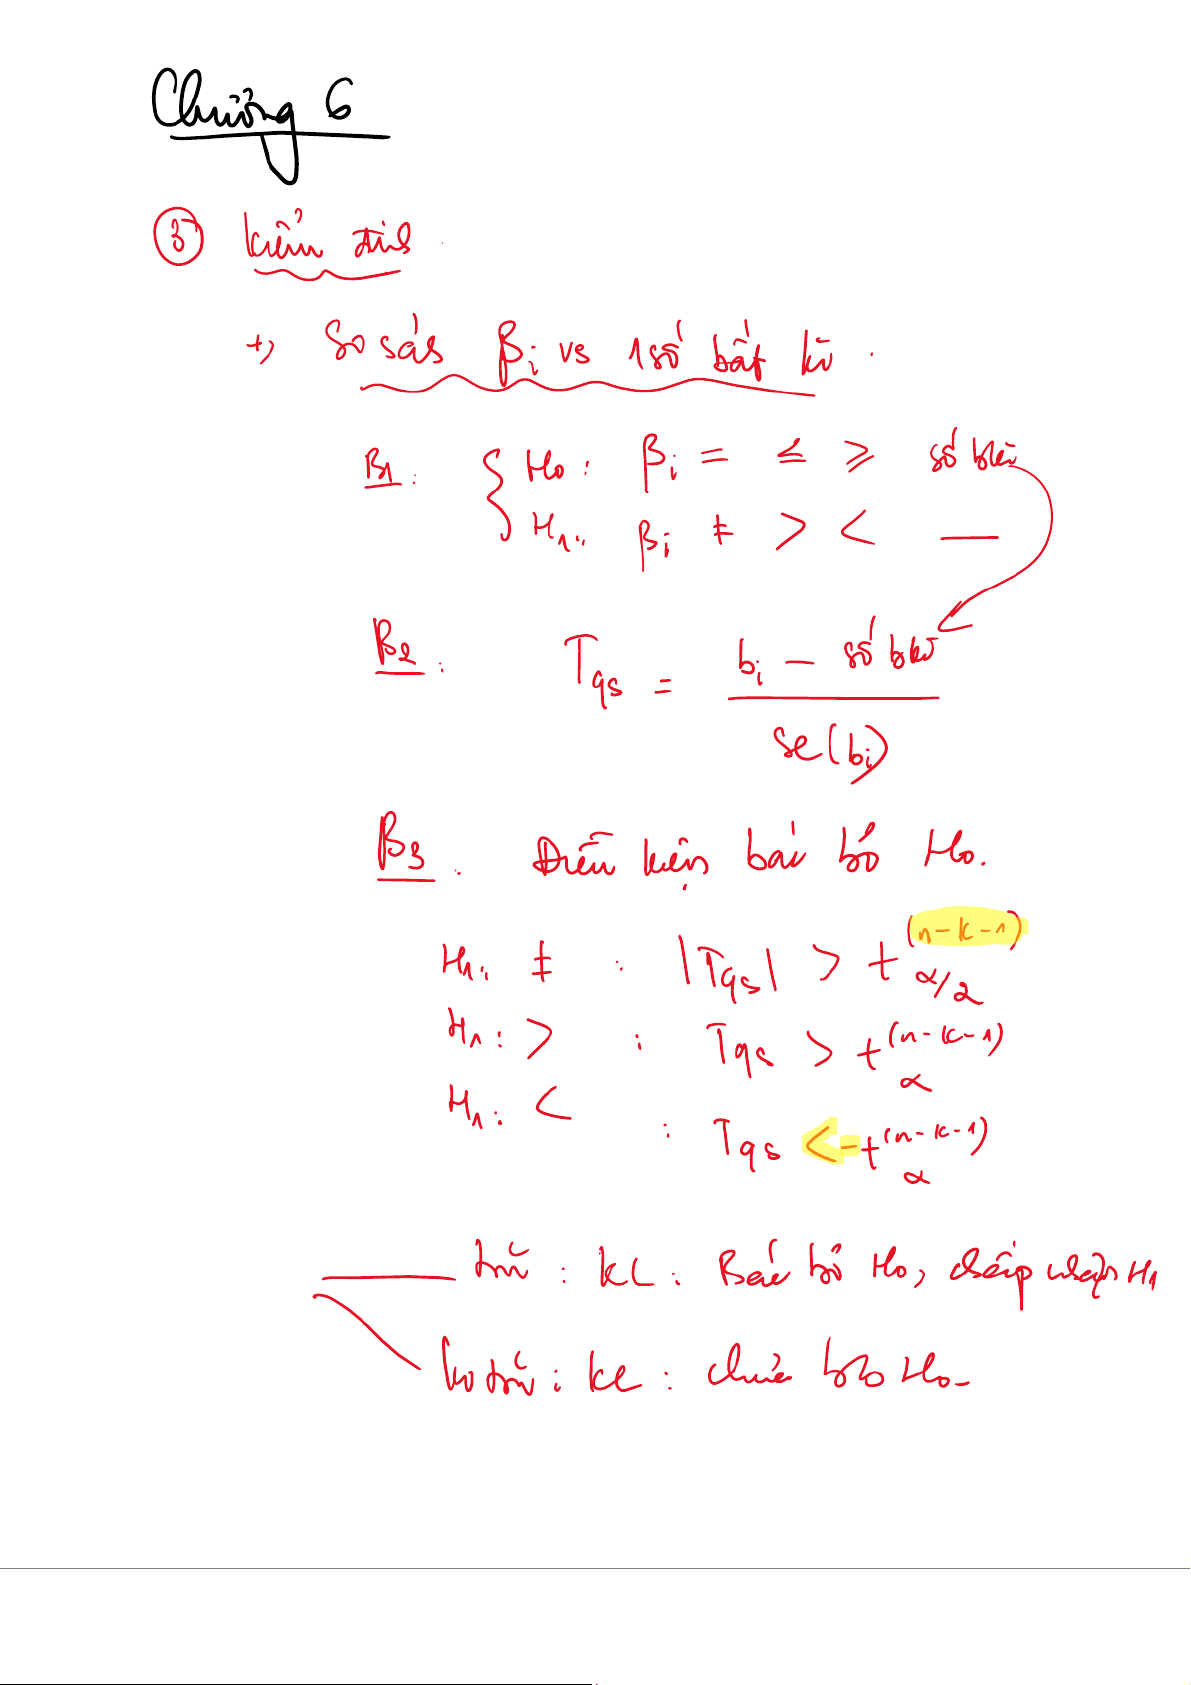 Chương 6
③ Kiểm định
+) So sánh βi vs 1 số bất kì.
B1: { H0: βi = ≤ ≥ số bkì
H1: βi ≠ > < —
B2: Tqs = (bi – số bkì) / se(bi)
B3. Điều kiện bác bỏ H0.
H1: ≠ : |Tqs| > t α/2 (n-k-1)
H1: > : Tqs > t α (n-k-1)
H1: < : Tqs < -t α (n-k-1)
tm̃ : KL: Bác bỏ H0, chấp nhận H1
ko tm̃ : KL: chưa bbỏ H0.